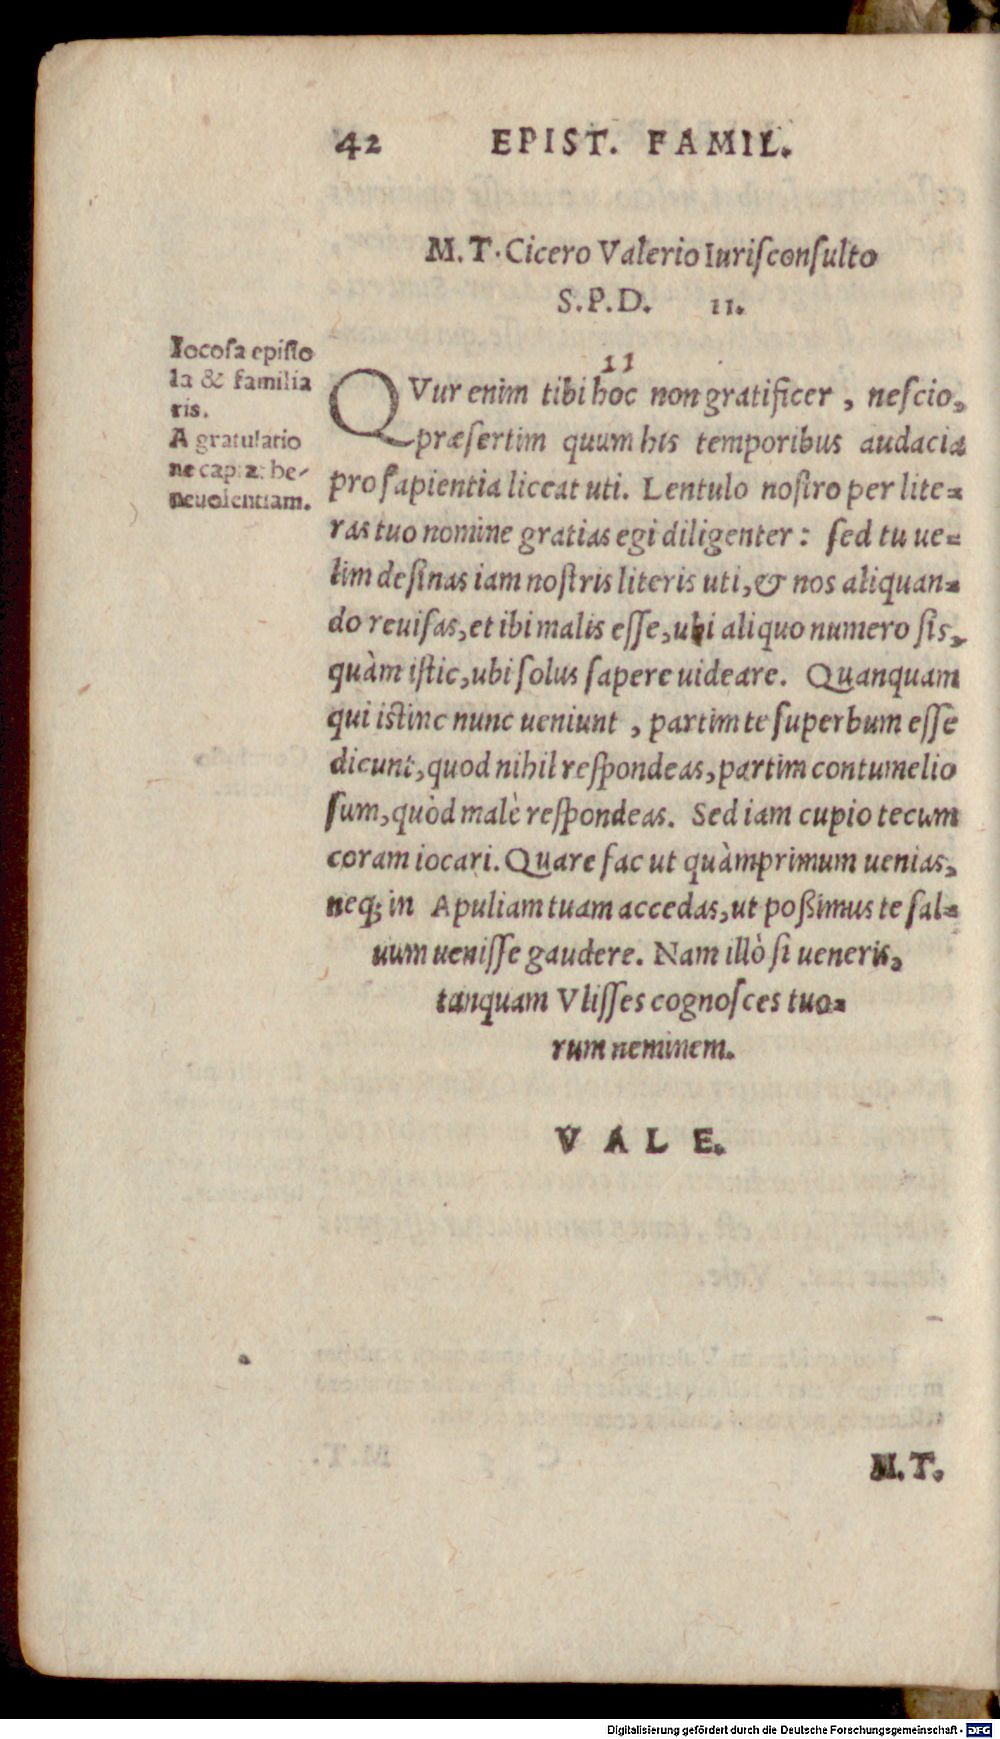 42 EPIST. FAMIL.
M. T. Cicero Valerio Iurisconsulto
S.P.D. 11.
11
Iocosa episto
la & familia
ris.
A gratulatio
ne cap: a: be-
neuolentiam.
QVur enim tibi hoc non gratificer, nescio,
præsertim quum his temporibus audacia
pro sapientia liceat uti. Lentulo nostro per lite=
ras tuo nomine gratias egi diligenter: sed tu ue=
lim desinas iam nostris literis uti, & nos aliquan=
do reuisas, et ibi malis esse, ubi aliquo numero sis,
quàm istic, ubi solus sapere uideare. Quanquam
qui istinc nunc ueniunt, partim te superbum esse
dicunt, quod nihil respondeas, partim contumelio
sum, quòd malè respondeas. Sed iam cupio tecum
coram iocari. Quare fac ut quàmprimum uenias,
neq; in Apuliam tuam accedas, ut poßimus te sal=
uum uenisse gaudere. Nam illò si ueneris,
tanquam Vlisses cognosces tuo=
rum neminem.
VALE.
M.T.
Digitalisierung gefördert durch die Deutsche Forschungsgemeinschaft - DFG